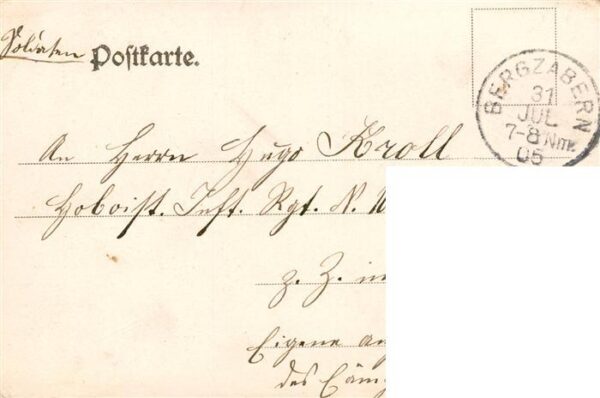 Soldaten Postkarte.
BERGZABERN
31
JUL
7-8 Nm
05
An Herrn Hugo Kroll
Hoboist. Inft. Rgt. N.
z. Z. in
Eigene
des